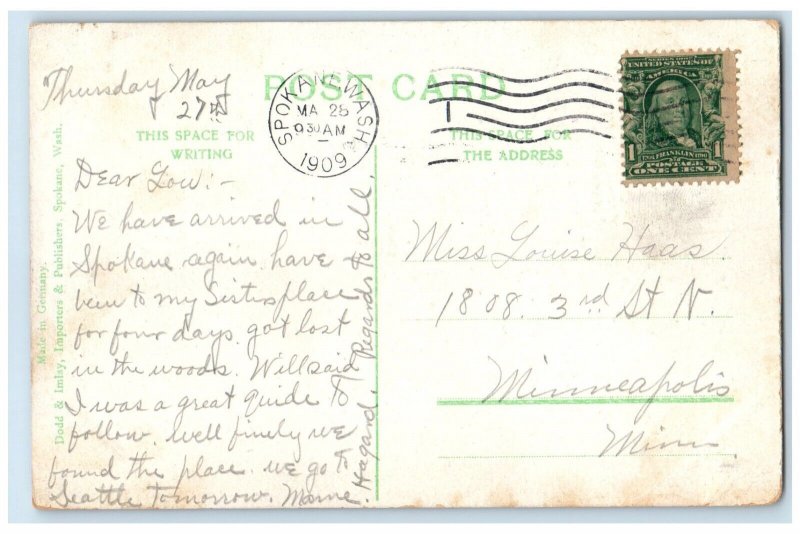 POST CARD
Thursday May
27th
SPOKANE WASH.
MA 28
930 AM
1909
SERIES 1902
UNITED STATES OF
AMERICA
FRANKLIN
POSTAGE
1
ONE CENT
THIS SPACE FOR
WRITING
THIS SPACE FOR
THE ADDRESS
Dear Low:-
We have arrived in
Spokane again. have
been to my Sisters place
for four days. got lost
in the woods. Will said
I was a great guide to
follow. well finely we
found the place. we go to
Seattle Tomorrow. Mame.
Hagard. Regards to all.
Miss Louise Haas.
1808. 3rd St N.
Minneapolis
Minn.
Made in Germany.
Dodd & Imlay, Importers & Publishers, Spokane, Wash.